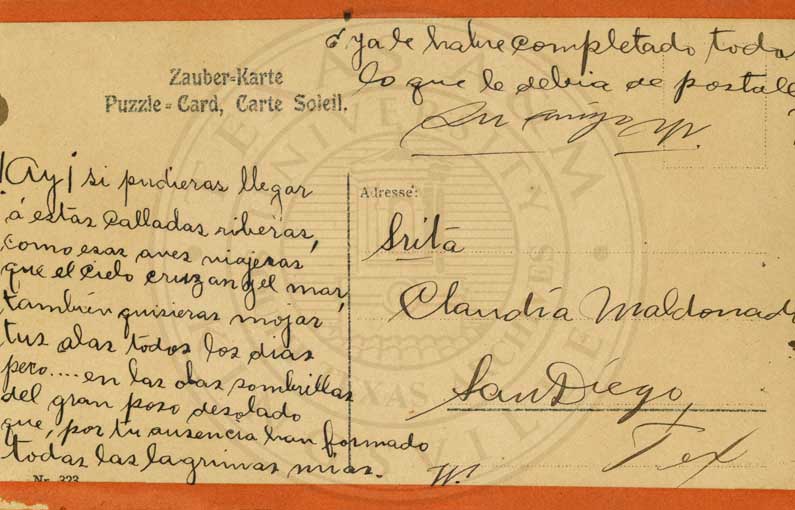 é ya le habre completado toda
lo que le debia de postale
Su amigo W.
Zauber=Karte
Puzzle=Card, Carte Soleil.
¡Ay! si pudieras llegar
á estas calladas riberas,
como esas aves viajeras
que el cielo cruzan y el mar,
también quisieras mojar
tus alas todos los dias
pero.... en las olas sombrillas
del gran poso desolado
que, por tu ausencia han formado
todas las lagrimas mias.
W.
Nr. 323
Adresse:
Srita
Claudia Maldonado
San Diego,
Tex
TEXAS A&M UNIVERSITY